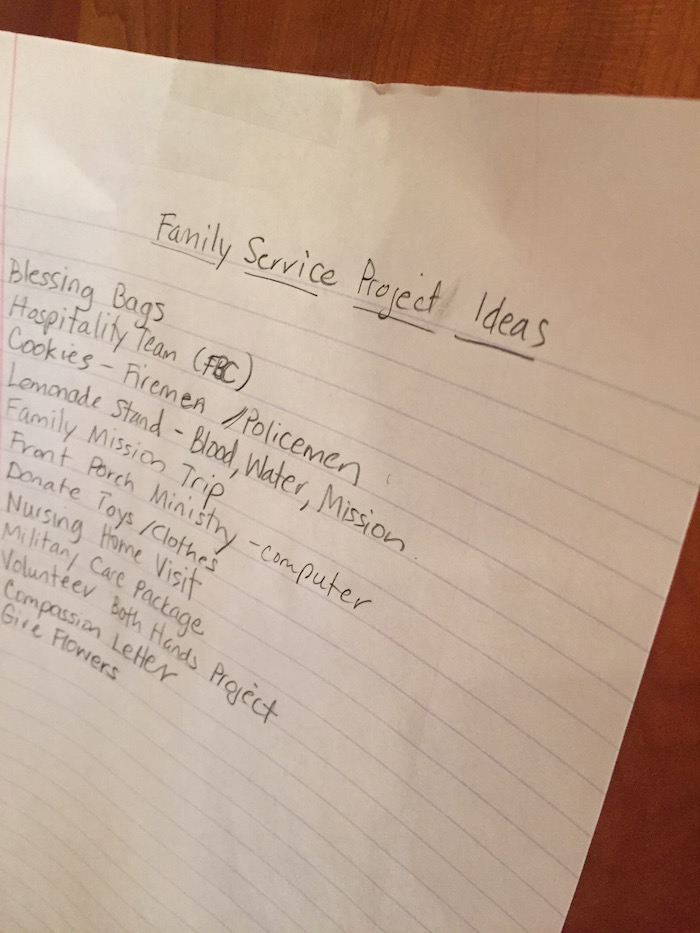 Family Service Project Ideas
Blessing Bags
Hospitality Team (FBC)
Cookies - Firemen //Policemen
Lemonade Stand - Blood, Water, Mission
Family Mission Trip
Front Porch Ministry - computer
Donate Toys/Clothes
Nursing Home Visit
Military Care Package
Volunteer Both Hands Project
Compassion Letter
Give Flowers